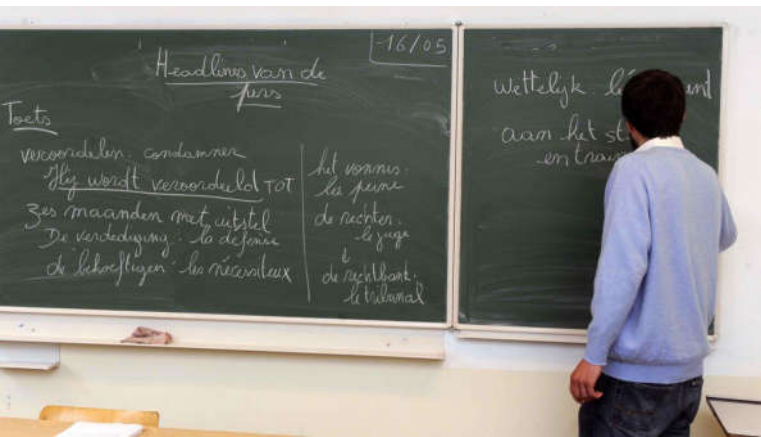 16/05
Headlines van de
pers
Toets
veroordelen: condamner
Hij wordt veroordeeld TOT
zes maanden met uitstel
De verdediging: la défense
de behoeftigen: les nécessiteux
het vonnis:
les peine
de rechter:
le juge
de rechtbank:
le tribunal
wettelijk:
aan het
en train